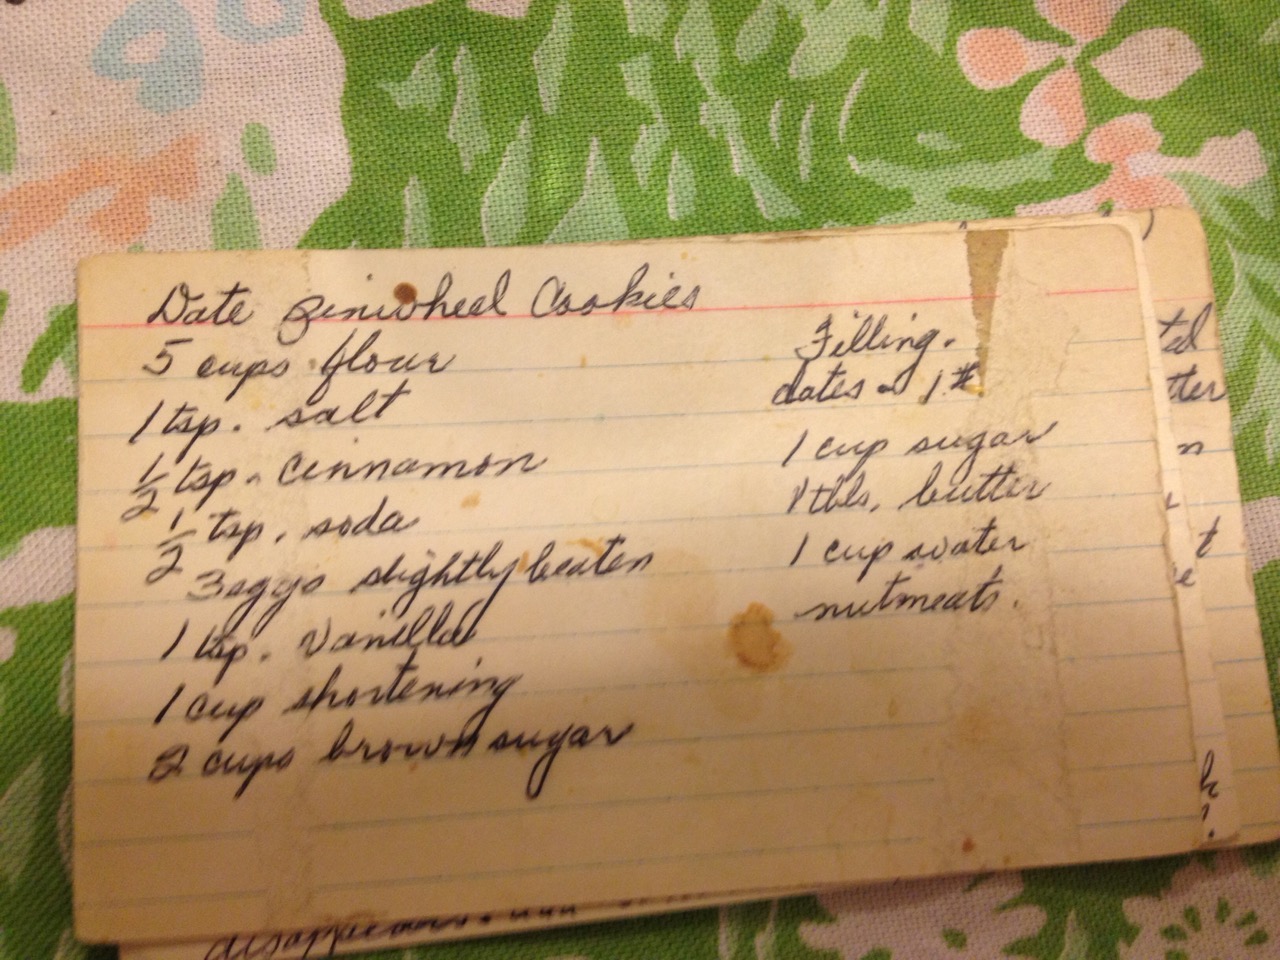 Date Pinwheel Cookies
5 cups flour
1 tsp. salt
1/2 tsp. cinnamon
1/2 tsp. soda
3 eggs slightly beaten
1 tsp. vanilla
1 cup shortening
2 cups brown sugar
Filling.
dates - 1#
1 cup sugar
1 tbls. butter
1 cup water
nutmeats.
ted
tter
n
t
e